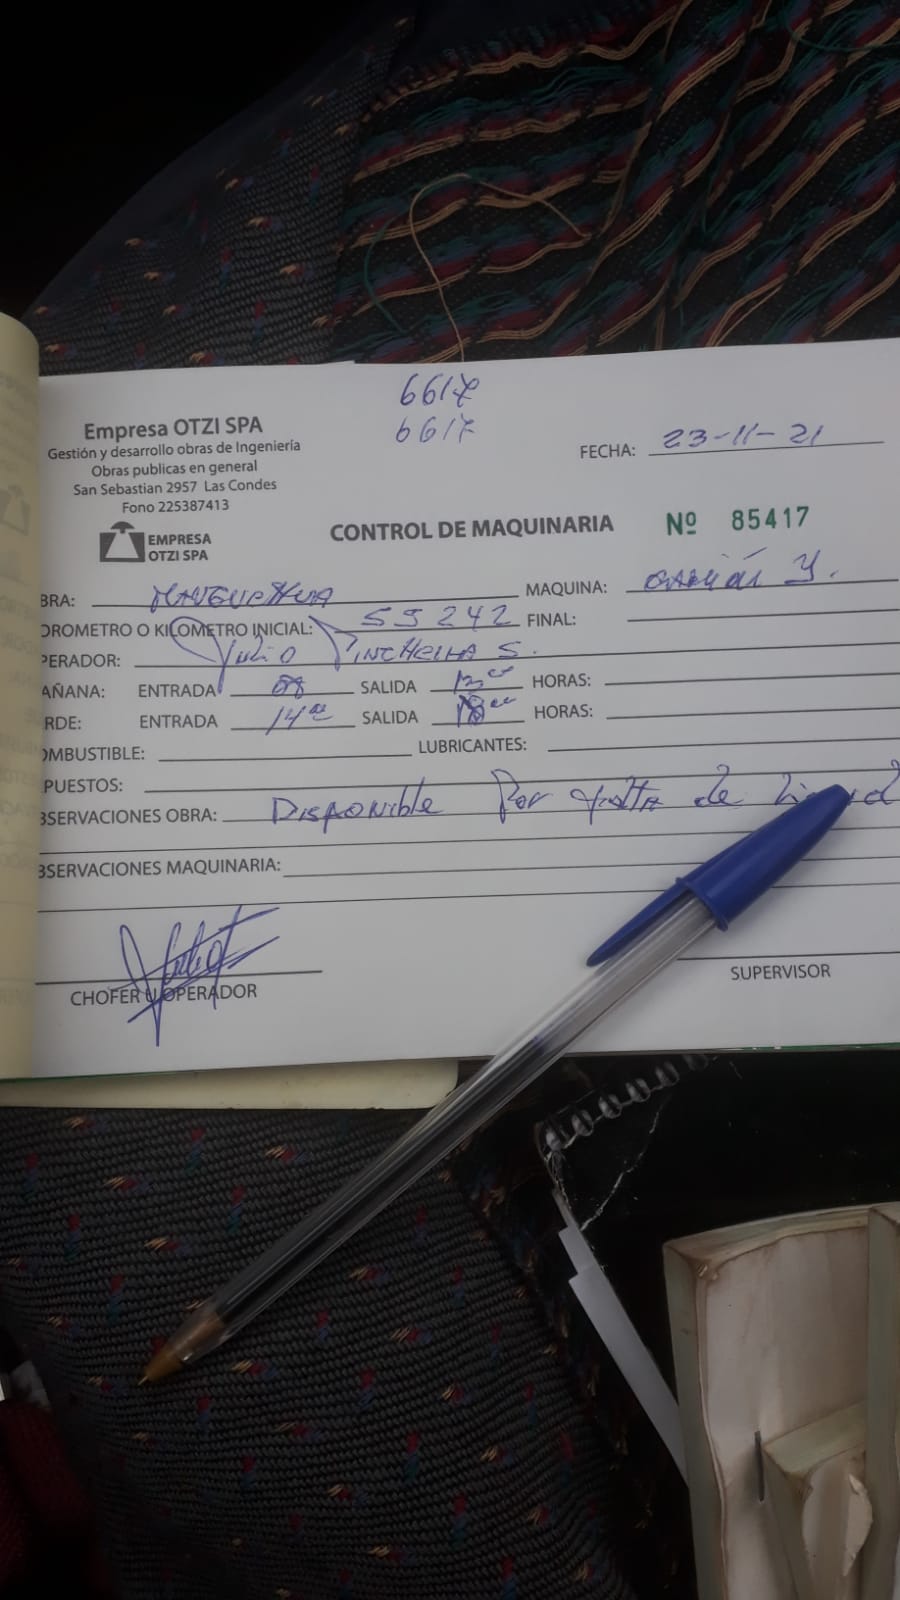 6617
6617
Empresa OTZI SPA
Gestión y desarrollo obras de Ingeniería
Obras publicas en general
San Sebastian 2957 Las Condes
Fono 225387413
FECHA: 23-11-21
EMPRESA
OTZI SPA
CONTROL DE MAQUINARIA Nº 85417
BRA: MAQUINA:
OROMETRO O KILOMETRO INICIAL: 55242 FINAL:
PERADOR: Julio S.
AÑANA: ENTRADA 08 SALIDA 13 00 HORAS:
RDE: ENTRADA 14 00 SALIDA 18 00 HORAS:
OMBUSTIBLE: LUBRICANTES:
PUESTOS:
BSERVACIONES OBRA: Disponible Por falta de
BSERVACIONES MAQUINARIA:
CHOFER U OPERADOR
SUPERVISOR